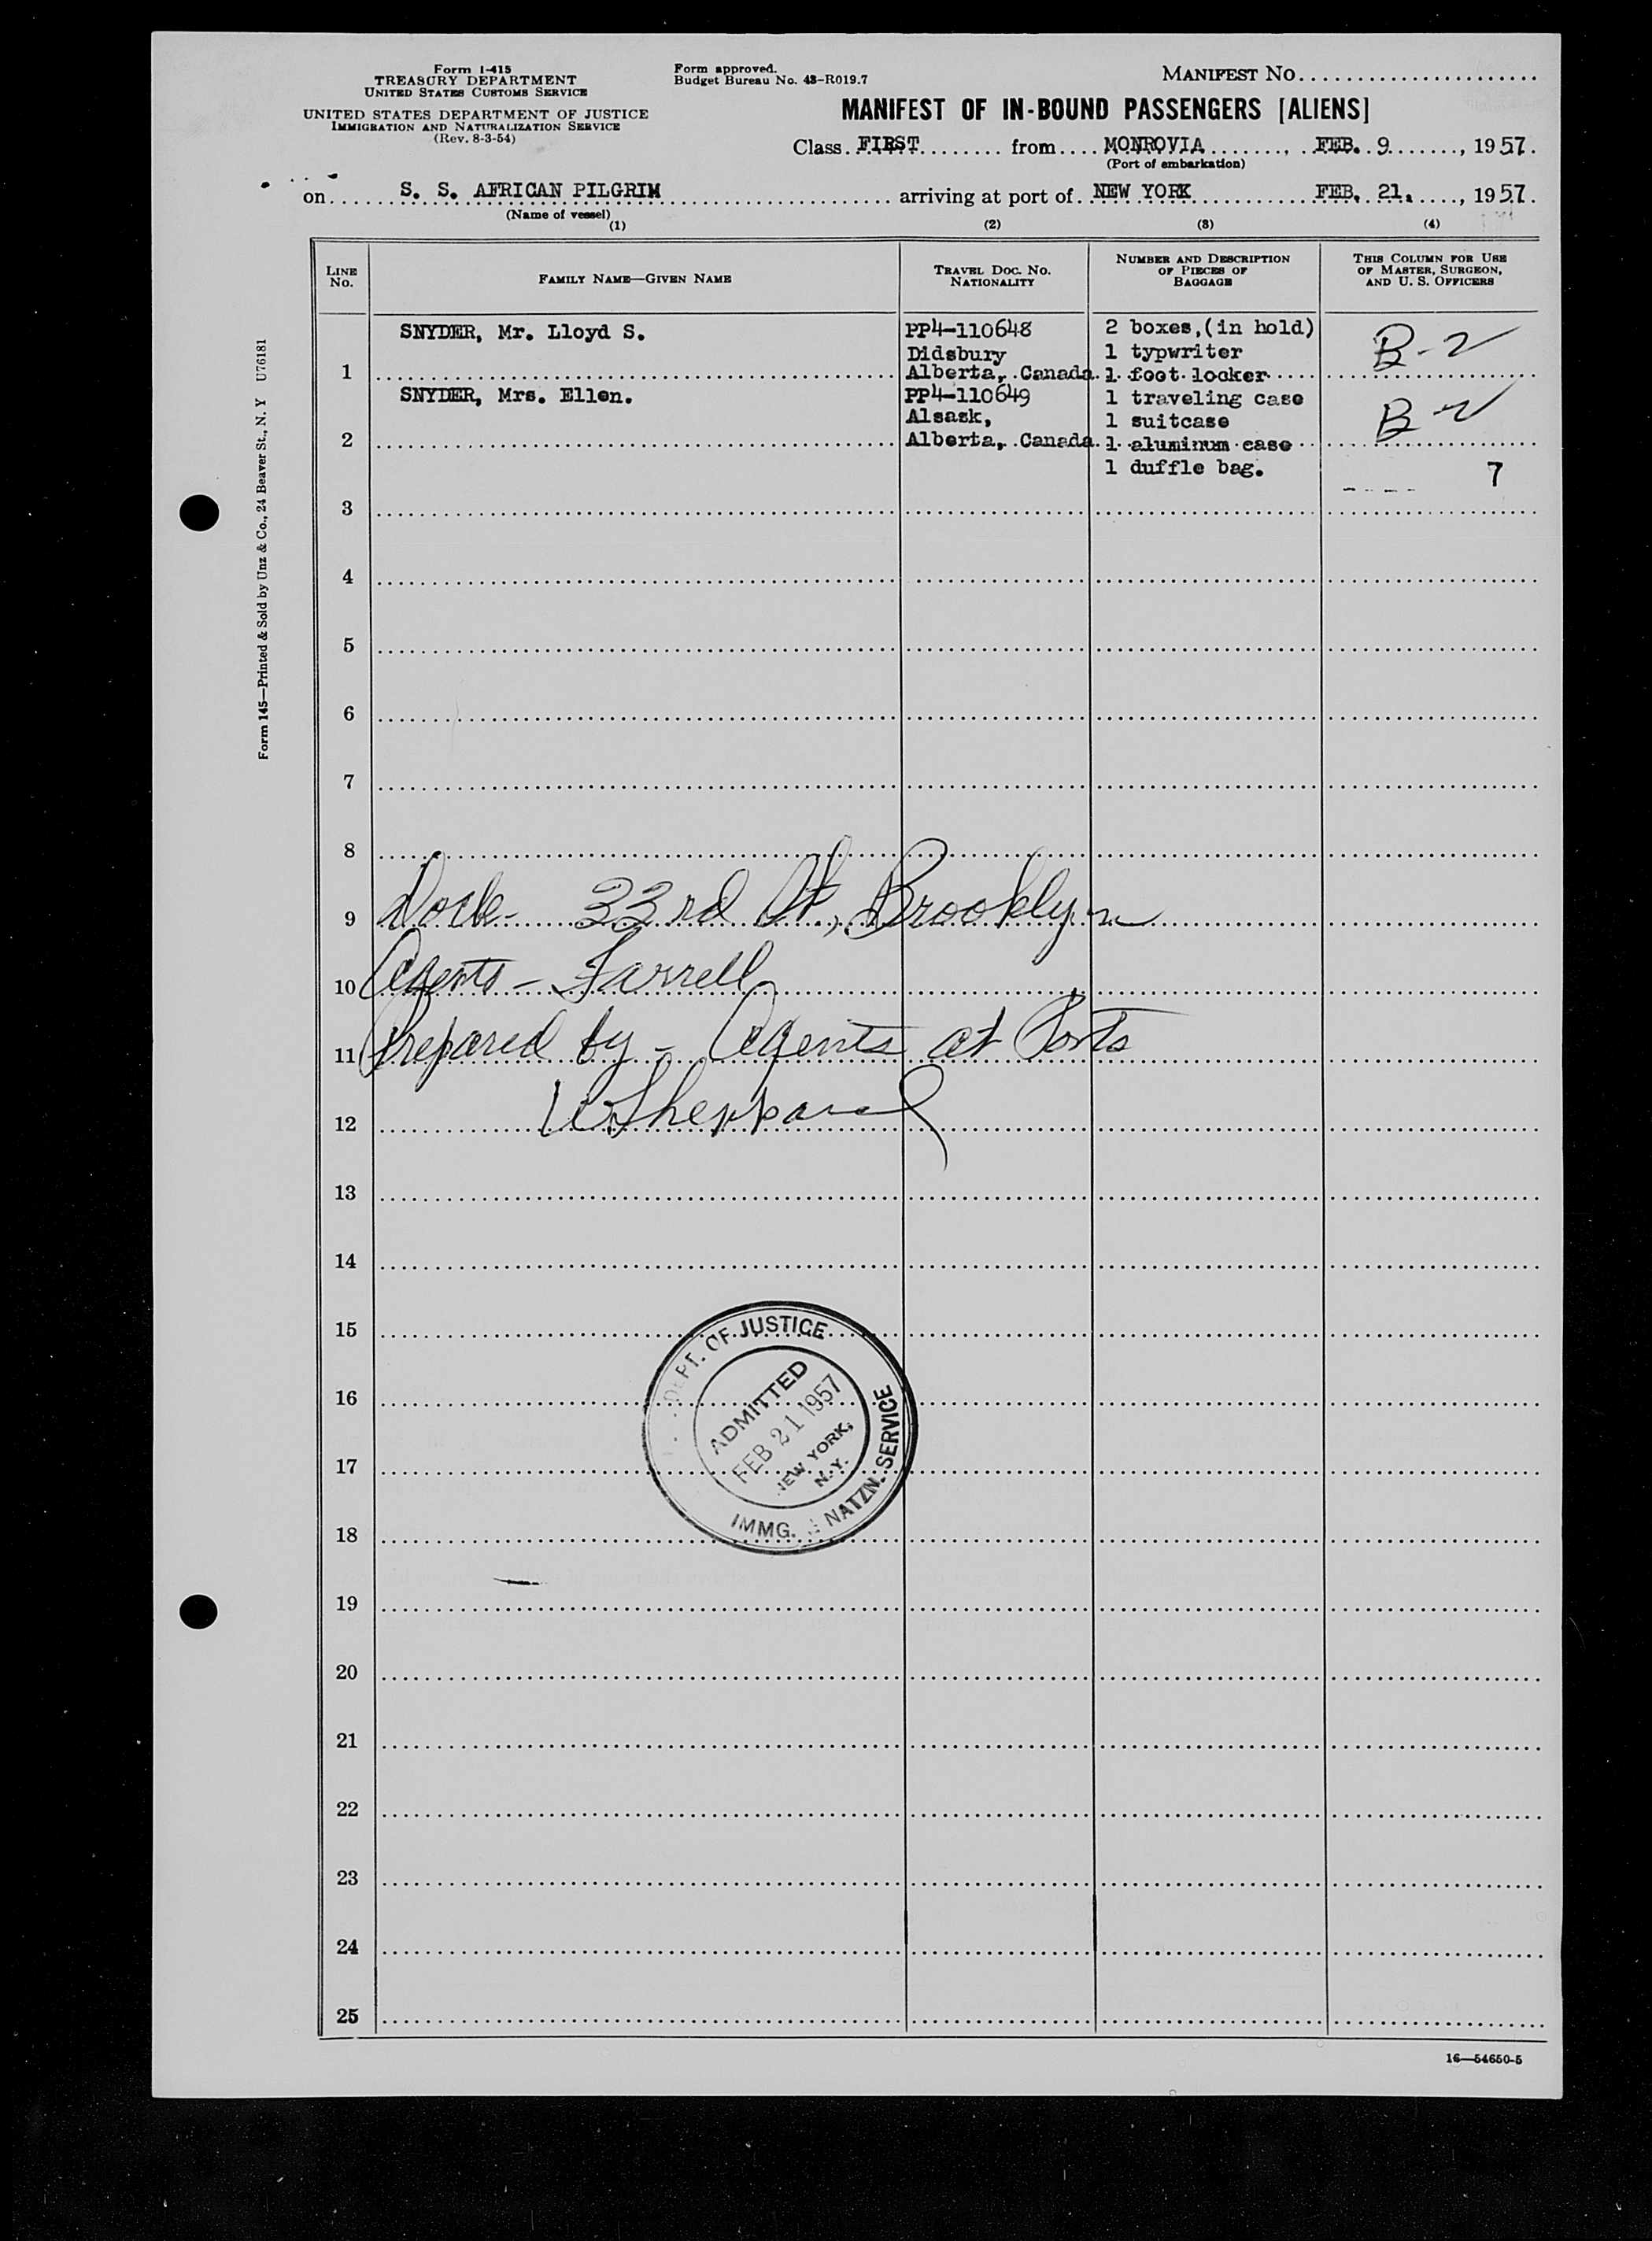 Form I-415
TREASURY DEPARTMENT
UNITED STATES CUSTOMS SERVICE
UNITED STATES DEPARTMENT OF JUSTICE
IMMIGRATION AND NATURALIZATION SERVICE
(Rev. 8-3-54)
Form approved.
Budget Bureau No. 43-R019.7
MANIFEST NO
MANIFEST OF IN-BOUND PASSENGERS [ALIENS]
Class FIRST from MONROVIA, FEB. 9, 1957.
(Port of embarkation)
on S. S. AFRICAN PILGRIM arriving at port of NEW YORK FEB. 21., 1957.
(Name of vessel)
(1) (2) (3) (4)
LINE NO. FAMILY NAME—GIVEN NAME TRAVEL DOC. NO. NATIONALITY NUMBER AND DESCRIPTION OF PIECES OF BAGGAGE THIS COLUMN FOR USE OF MASTER, SURGEON, AND U. S. OFFICERS
SNYDER, Mr. Lloyd S. PP4-110648 2 boxes,(in hold) B-2
Didsbury 1 typwriter
1 Alberta, Canada. 1 foot locker
SNYDER, Mrs. Ellen. PP4-110649 1 traveling case B-2
Alsask, 1 suitcase
2 Alberta, Canada. 1 aluminum case
1 duffle bag. 7
3
4
5
6
7
8
9 Dock- 33rd St., Brooklyn
10 Agents - Farrell
11 Prepared by - Agents at Ports
12 Sheppard
13
14
15
16
17
18
19
20
21
22
23
24
25
DEPT. OF JUSTICE
ADMITTED
FEB 21 1957
NEW YORK,
N.Y.
IMMG. & NATZN. SERVICE
Form 145—Printed & Sold by Unz & Co., 24 Beaver St., N. Y U76181
16—54650-5